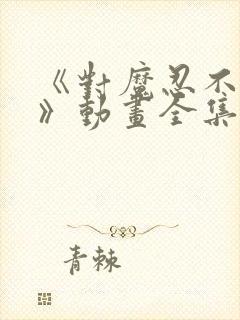 《對魔忍不
》動畫全集
青棘